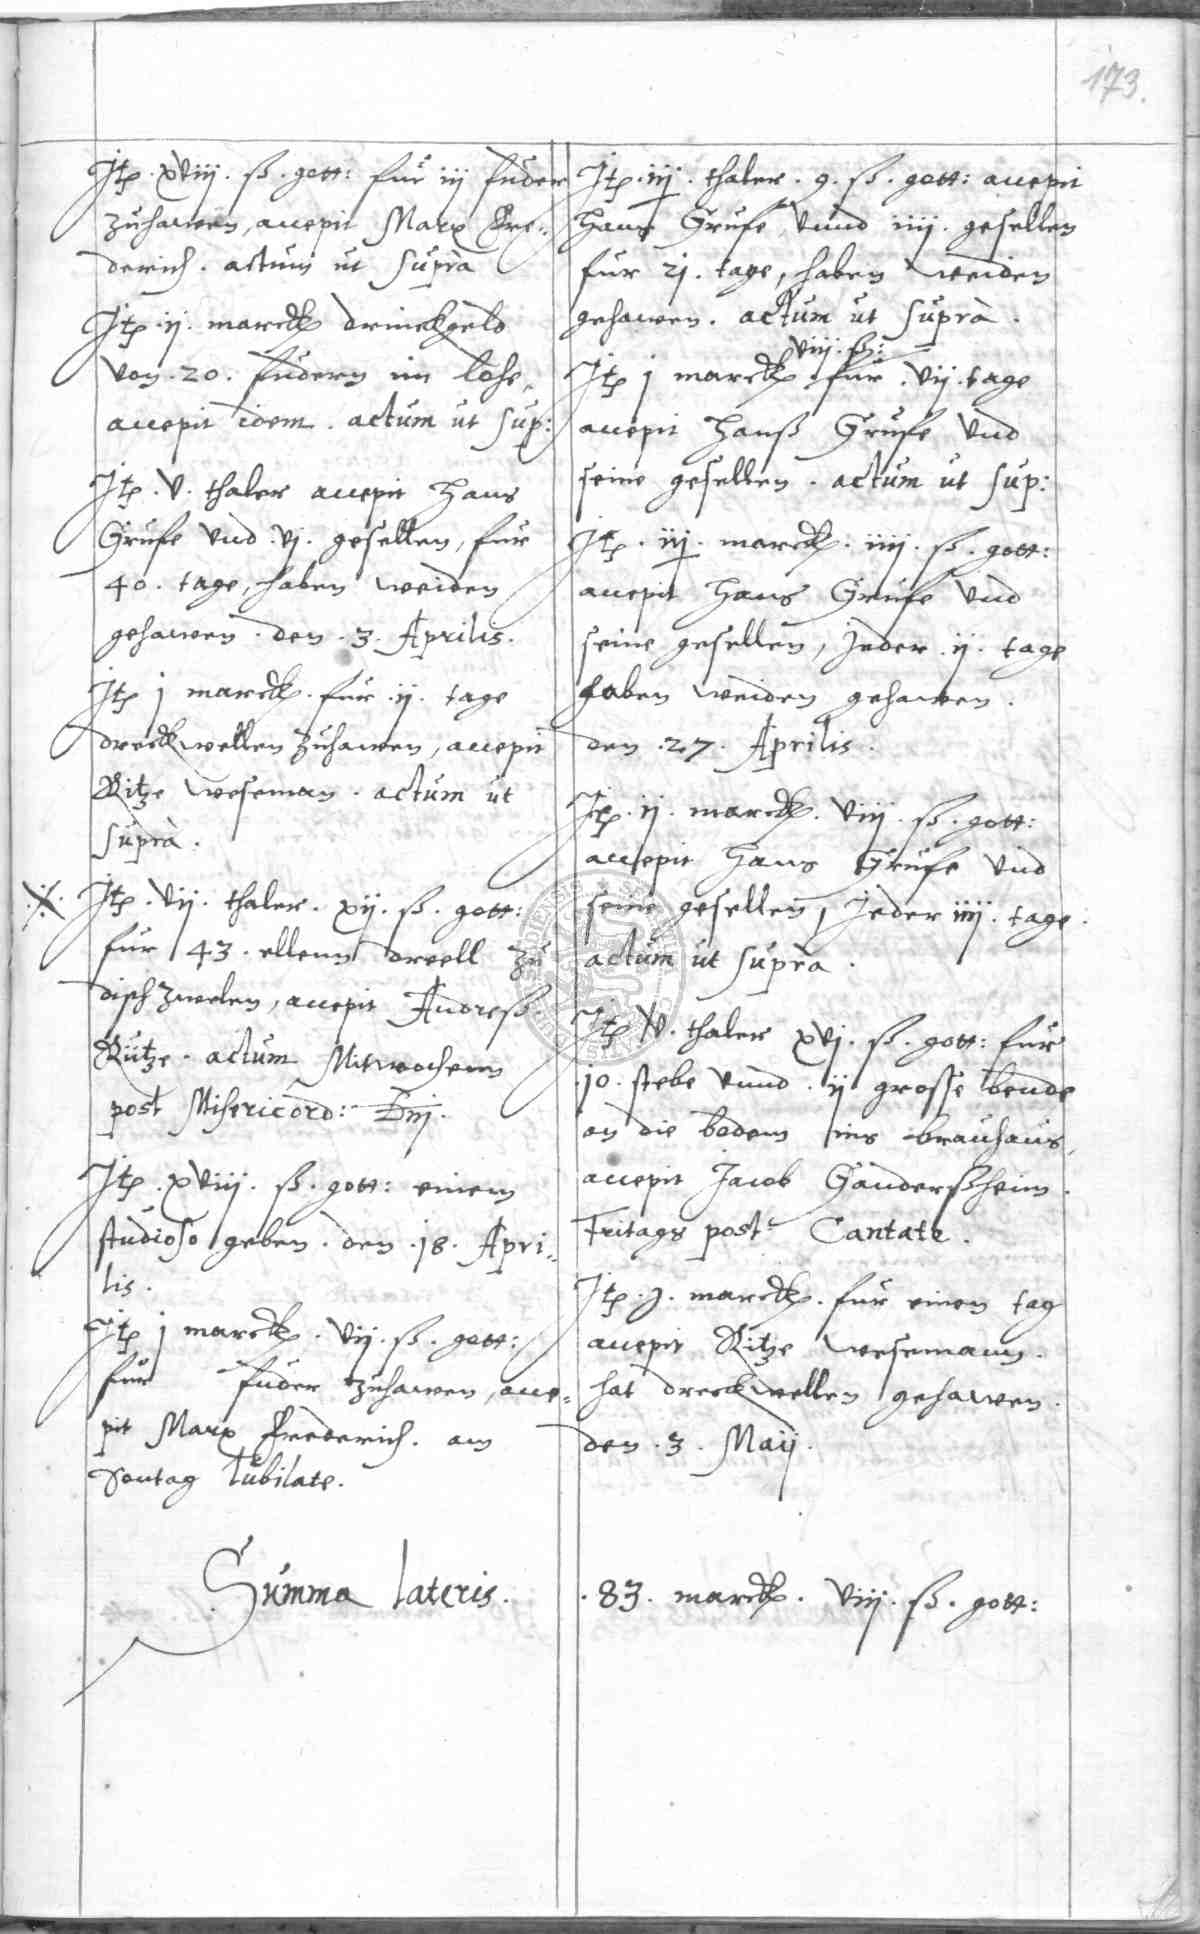 173.
Itp. xviij. ß. gott: für iij fuder
zuhawen, accepit Marx Fre-
derich. actum ut supra
Itp. ij. marck drinckgeld
von .20. fudern im lohe,
accepit idem. actum ut sup:
Itp. v. thaler accepit Hans
Grufe vnd .vj. gesellen, fur
40. tage, haben weiden
gehawen. den .3. Aprilis.
Itp j marck. fur .ij. tage
dreckwellen zuhawen, accepit
Ritze Weseman. actum ut
supra.
Itp. vij. thaler. xij. ß. gott:
fur 43. ellenn dreell zu
disch zwelen, accepit Andreß
Rütze. actum Mitwochenn
post Misericord: Dnj.
Itp. xviij. ß. gott: einem
studioso geben. den .18. Apri-
lis.
Itp j marck. vij. ß. gott:
fur fuder zuhawen, acce-
pit Marx Frederich. am
Sontag Iubilate.
Summa lateris.
Itp. iij. thaler. 9. ß. gott: accepit
Hans Grufe, vnnd iiij. gesellen
fur 21. tage, haben weiden
gehawen. actum ut supra.
viij. ß:
Itp j marck. fur .vij. tage
accepit Hanß Grufe vnd
seine gesellen. actum ut sup:
Itp. iij. marck. iiij. ß. gott:
accepit Hans Grufe vnd
seine gesellen, jeder .ij. tage
haben weiden gehawen.
den .27. Aprilis.
Itp. ij. marck. viij. ß. gott:
accepit Hans Grufe vnd
seine gesellen, jeder iiij. tage.
actum ut supra.
Itp v. thaler xvj. ß. gott: fur
.10. stebe vnnd .ij grosse bende
an die bodem ins brauhaus,
accepit Jacob Gandersßheim.
Fritags post Cantate.
Itp. j. marck. fur einen tag
accepit Ritze Wesemann.
hat dreckwellen gehawen.
den .3. Maij.
.83. marck. viij. ß. gott: